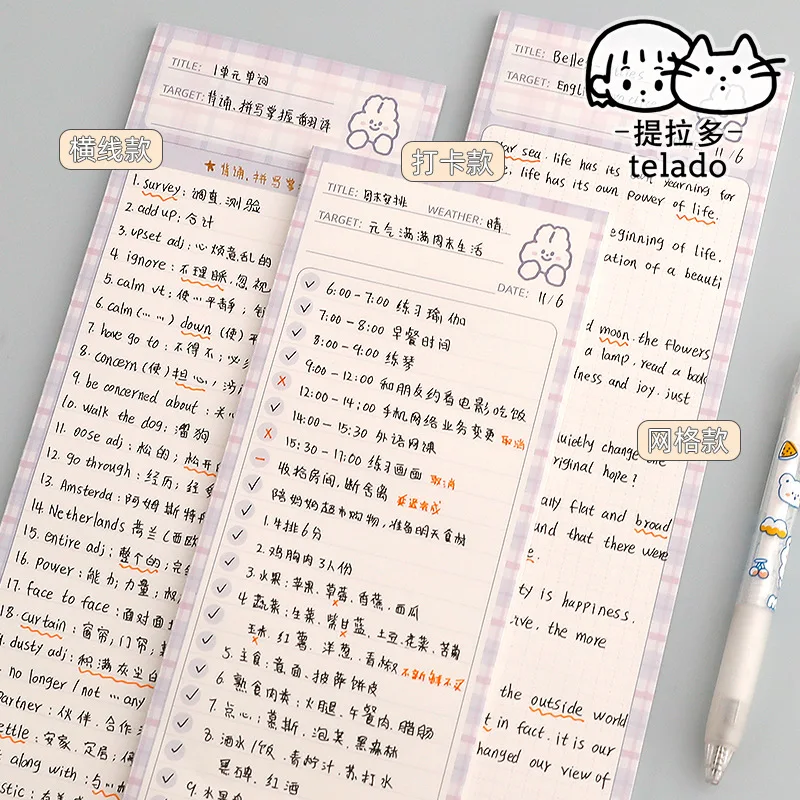 提拉多
telado
横线款
打卡款
网格款
TITLE: 1单元单词
TARGET: 背诵、拼写掌握翻译
★背诵、拼写掌
1. survey: 调查、测验
2. add up: 合计
3. upset adj: 心烦意乱的
4. ignore: 不理睬、忽视
5. calm vt: 使…平静;
6. calm (……) down (使)平
7. have go to: 不得不;
8. concern (使)担心;
9. be concerned about: 关心
10. walk the dog: 溜狗
11. oose adj: 松的; 松开
12. go through: 经历;
13. Amsterda: 阿姆斯特
14. Netherlands 荷兰(西欧
15. entire adj: 整个的;
16. power: 能力; 力量;
17. face to face: 面对面
18. curtain: 窗帘; 门帘;
dusty adj: 积满灰尘
no longer / not ... any
Partner: 伙伴. 合作
settle: 安家、定居;
along with: 与
TITLE: 周末安排 WEATHER: 晴
TARGET: 元气满满周末生活
DATE: 11/6
6:00-7:00 练习瑜伽
7:00-8:00 早餐时间
8:00-9:00 练琴
9:00-12:00 和朋友约看电影吃饭
12:00-14:00 手机网络业务变更 取消
14:00-15:30 外语网课
15:30-17:00 练习画画 取消
收拾房间,断舍离 延迟完成
陪妈妈超市购物,准备明天食材
1. 牛排6分
2. 鸡胸肉3人份
3. 水果: 苹果、草莓、香蕉、西瓜
4. 蔬菜: 生菜、紫甘蓝、土豆、花菜、苦菊
玉米、红薯、洋葱、青椒 不新鲜不买
5. 主食: 意面、披萨饼皮
6. 熟食肉类: 火腿、午餐肉、腊肠
7. 点心: 慕斯、泡芙、黑森林
8. 酒水/饮、青柠汁、苏打水
红酒
9. 水果
TITLE: Belle
TARGET: Engli
11/6
sea. life has its yearning for
life has its own power of life.
eginning of life.
ation of a beauti
moon. the flowers
a lamp, read a book
ness and joy. just
uietly change
riginal hope?
ally flat and broad
und that there were
ty is happiness.
rve. the more
the outside world
t in fact. it is our
hanged our view of